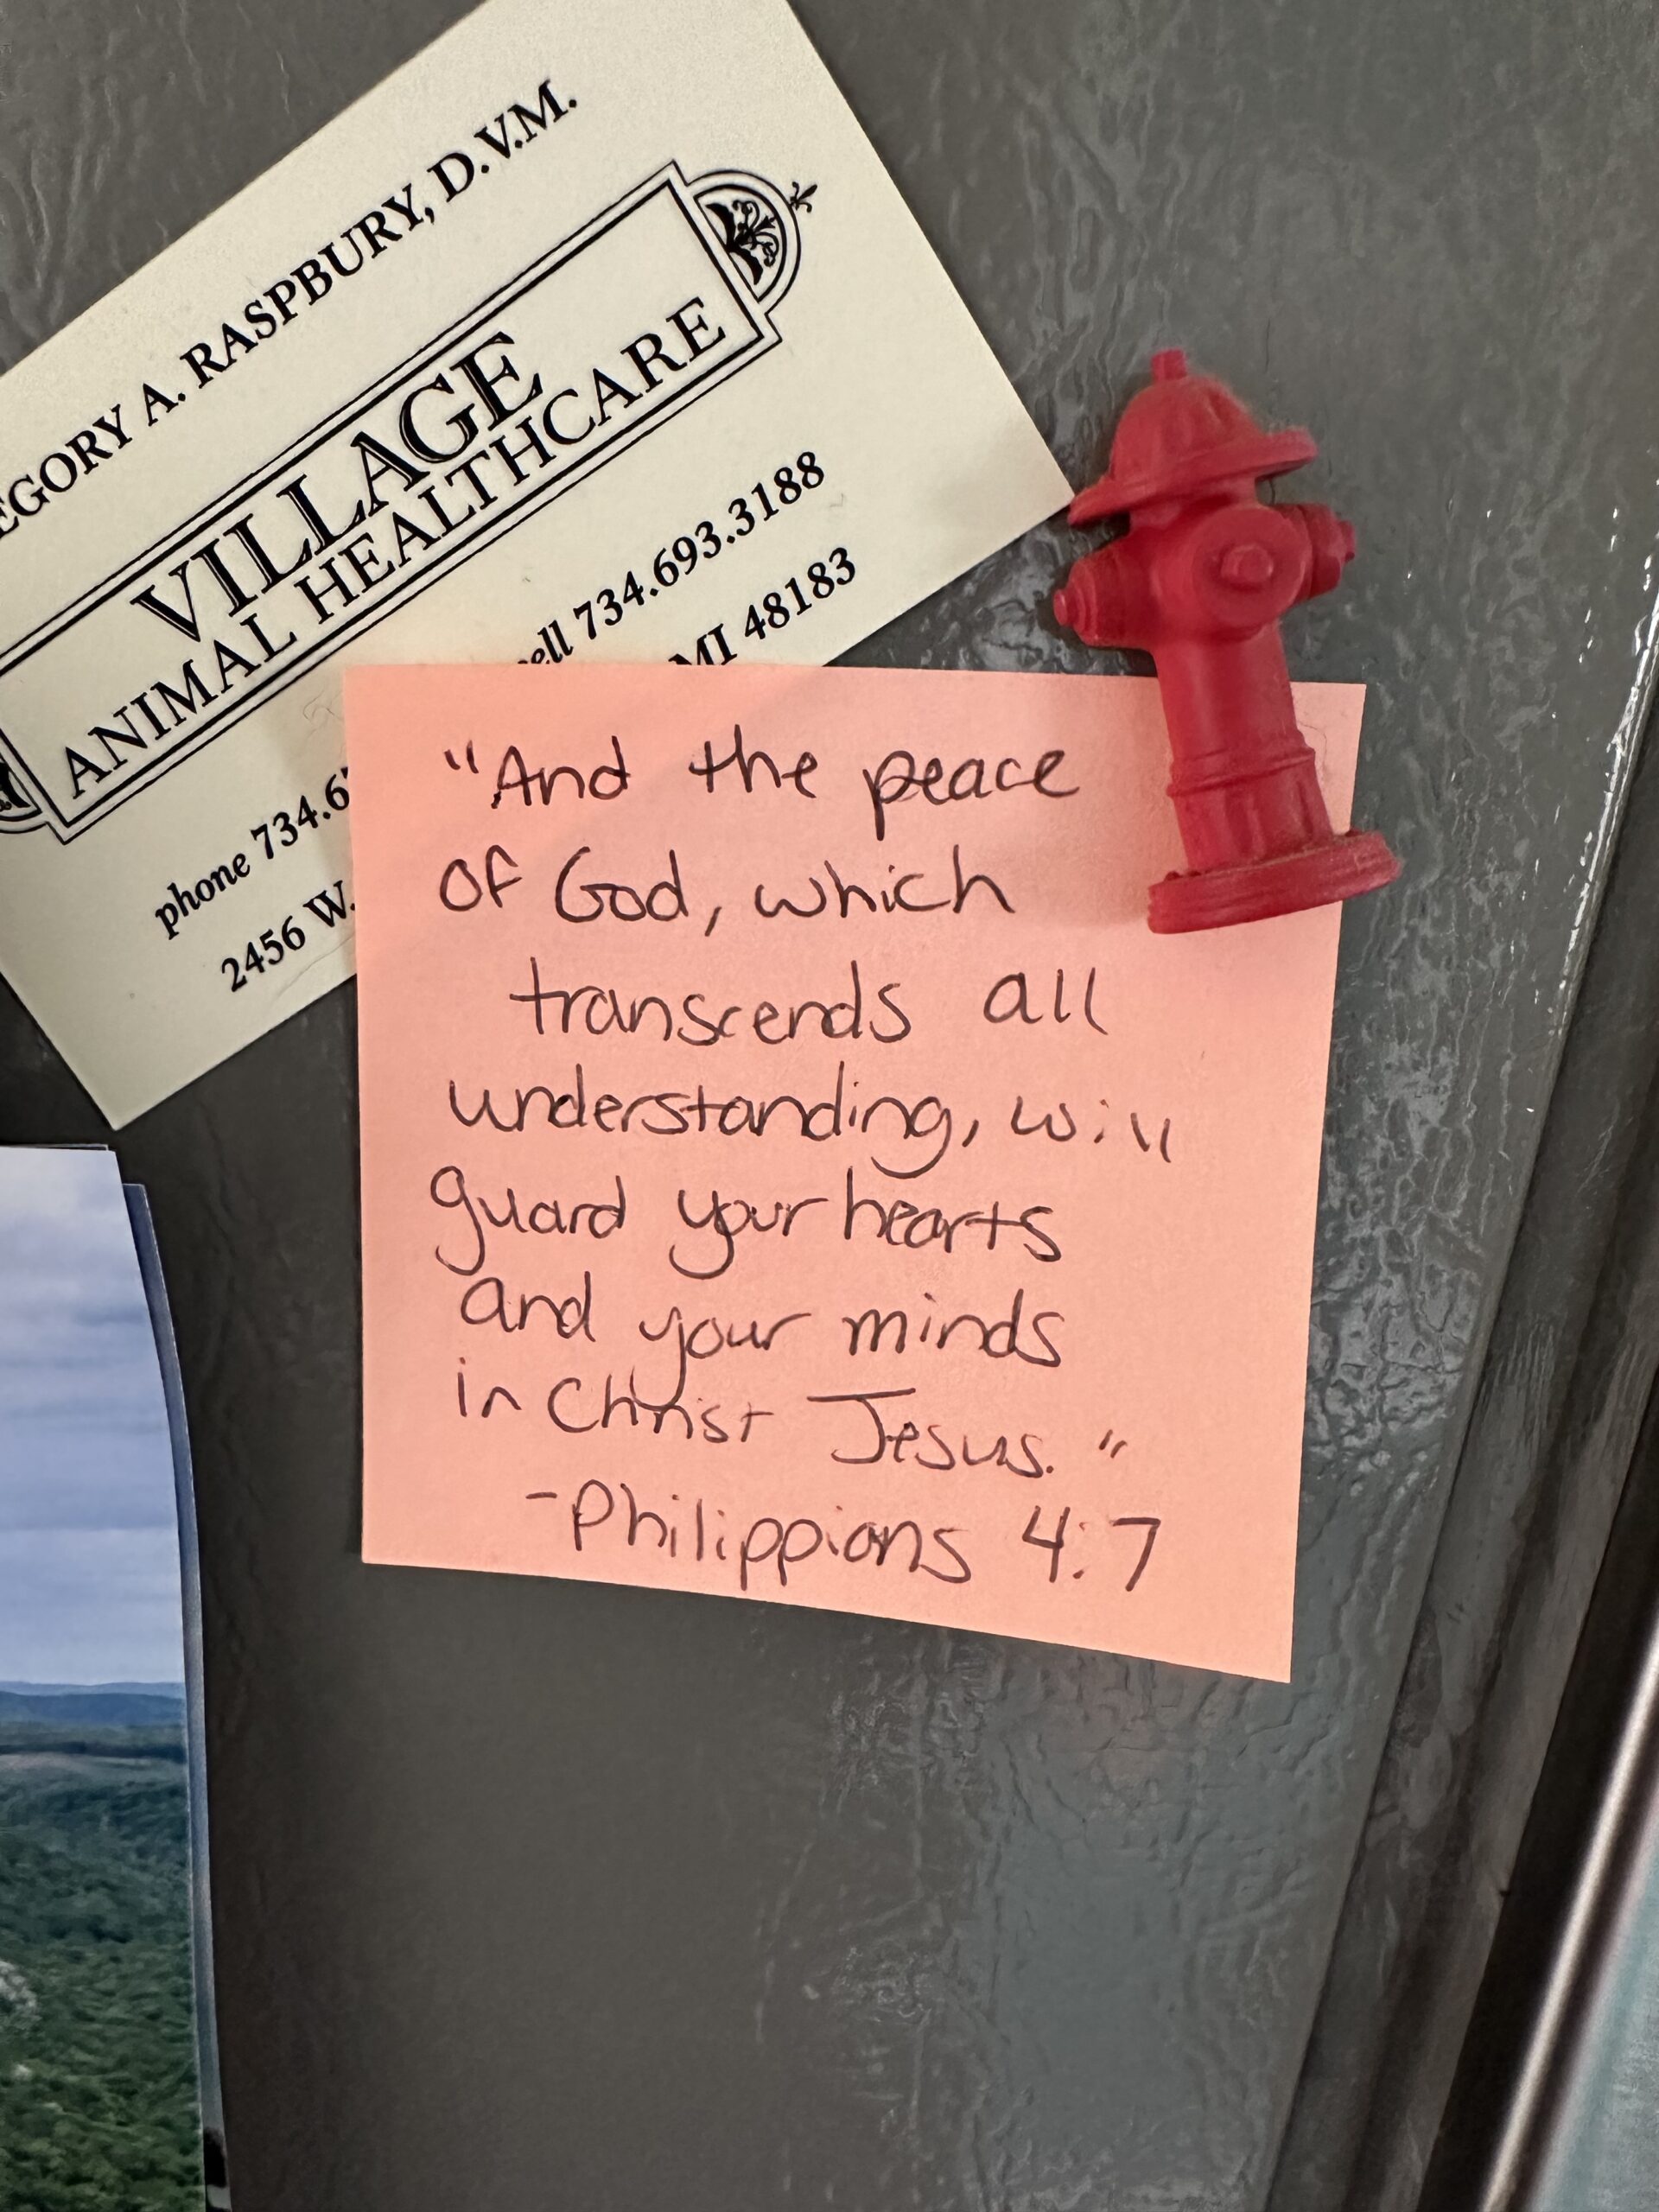 EGORY A. RASPBURY, D.V.M.
VILLAGE
ANIMAL HEALTHCARE
phone 734.6
ell 734.693.3188
2456 W.
MI 48183
"And the peace
of God, which
transcends all
understanding, will
guard your hearts
and your minds
in Christ Jesus."
-Philippians 4:7